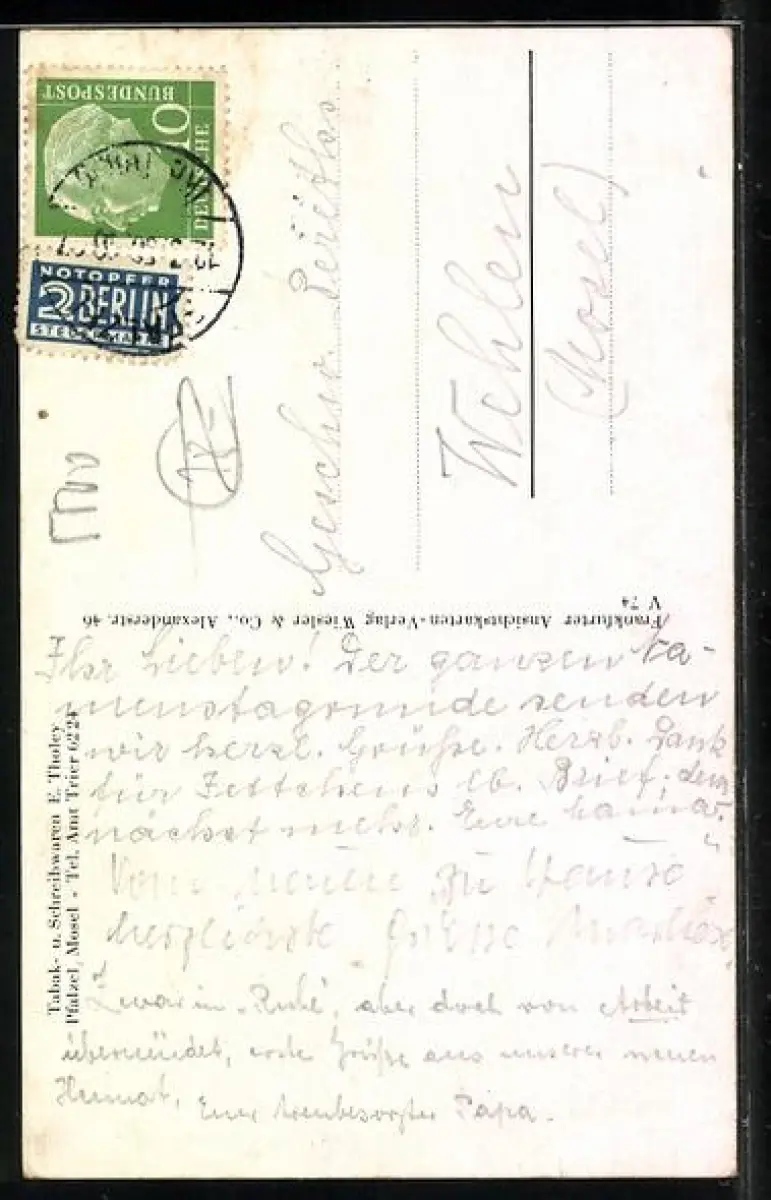 DEUTSCHE
BUNDESPOST
10
NOTOPFER
2 BERLIN
STEUERMARKE
Geschw.
Wehlen
(Mosel)
Frankfurter Ansichtskarten-Verlag Wiesler & Co., Alexanderstr. 46
V 74
Tabak- u. Schreibwaren E. Tholey
Pfalzel, Mosel - Tel. Amt Trier 6224
Ihr Lieben! Der ganzen Na-
menstagsrunde senden
wir herzl. Grüße. Herzl. Dank
für Settchens lb. Brief, dem
nächst mehr. Eure
Vom neuen zu Hause
herzlichste Grüsse
Zwar in „Ruhe", aber doch von Arbeit
übermüdet, erste Grüße aus unserer neuen
Heimat, Euer treubesorgter Papa.